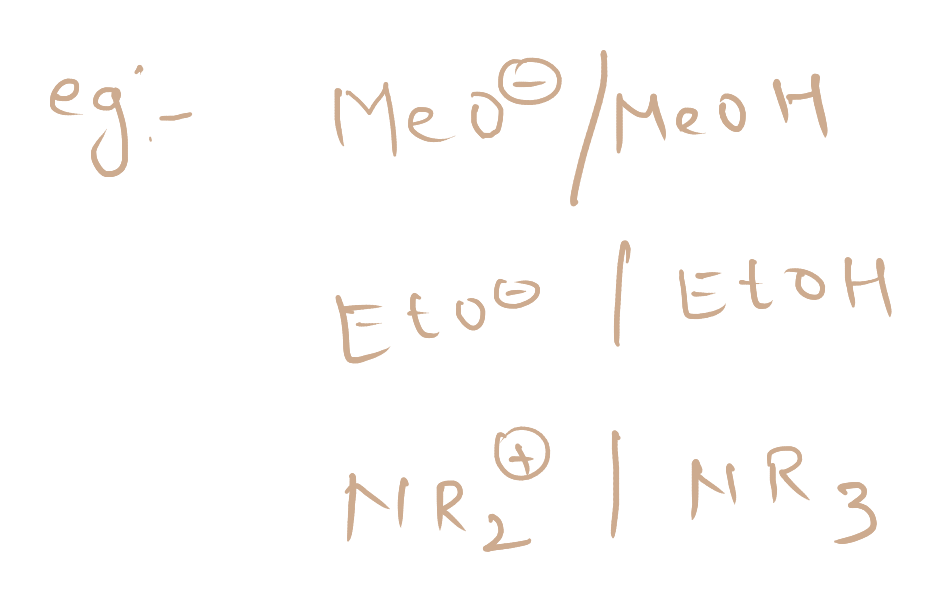 eg:- MeO⊖/MeOH
EtO⊖ / EtOH
NR₂⊕ / NR₃